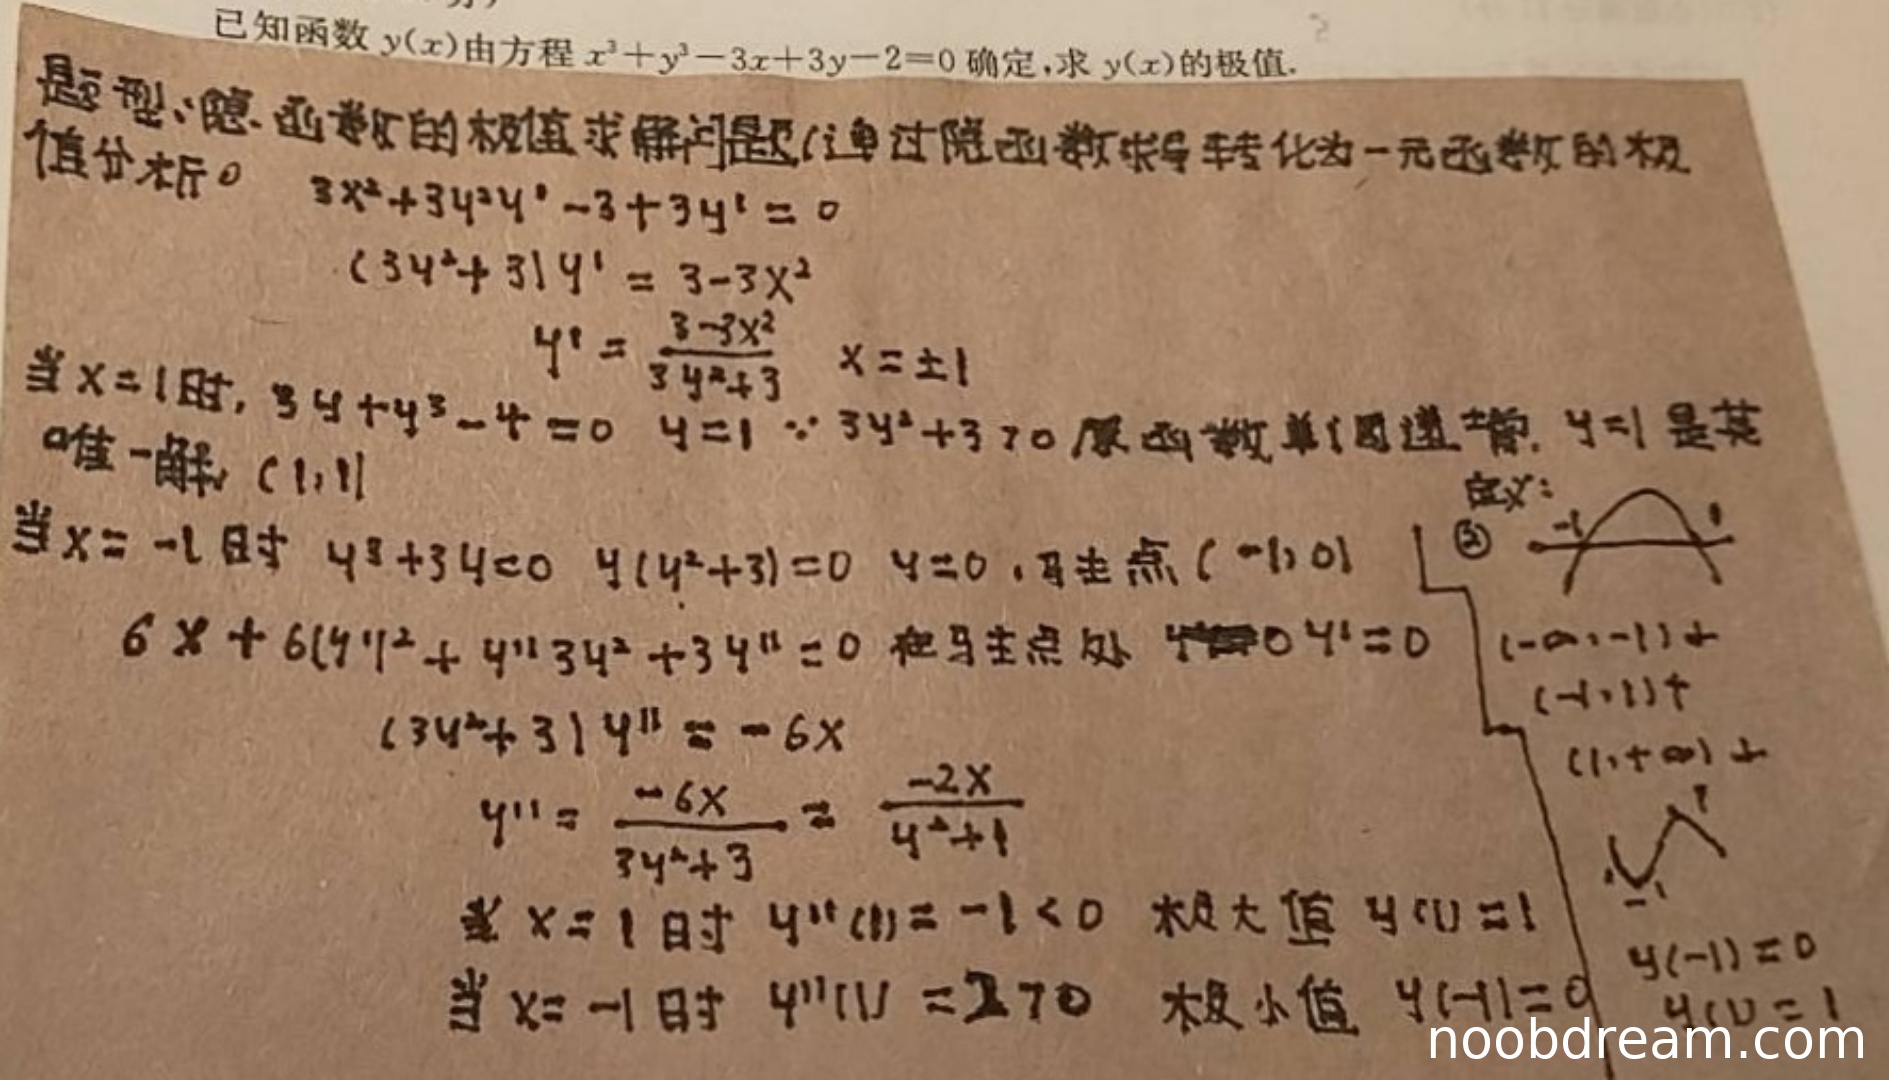 已知函数 y(x)由方程 x³+y³-3x+3y-2=0 确定,求 y(x)的极值.
题型:隐函数的极值求解问题(通过隐函数求导转化为一元函数的极
值分析。
3x²+3y²y'-3+3y'=0
(3y²+3)y'=3-3x²
y'=\frac{3-3x²}{3y²+3} x=±1
当x=1时, 3y+y³-4=0 y=1 ∵3y²+3>0 原函数单调递增. y=1是其
唯一解, (1,1)
当x=-1时 y³+3y=0 y(y²+3)=0 y=0,驻点(-1,0)
6x+6(y')²+y''3y²+3y''=0 在驻点处 y'=0
(3y²+3)y''=-6x
y''=\frac{-6x}{3y²+3}=\frac{-2x}{y²+1}
当x=1时 y''(1)=-1<0 极大值 y(1)=1
当x=-1时 y''(1)=2>0 极小值 y(-1)=0
定义:
② -1 1
(-∞,-1)+
(-1,1)+
(1,+∞)+
1
-1
y(-1)=0
y(1)=1
noobdream.com